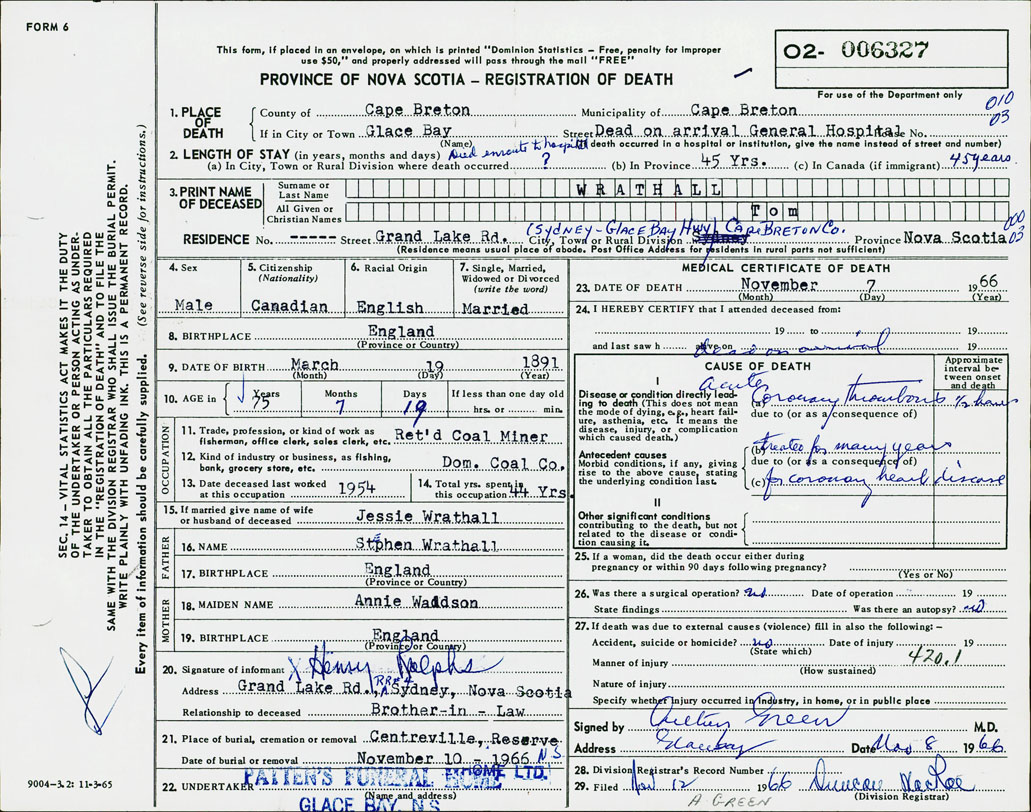 FORM 6
This form, if placed in an envelope, on which is printed "Dominion Statistics – Free, penalty for improper
use $50," and properly addressed will pass through the mail "FREE"
PROVINCE OF NOVA SCOTIA – REGISTRATION OF DEATH
02- 006327
For use of the Department only
010
03
1. PLACE OF DEATH
County of Cape Breton Municipality of Cape Breton
If in City or Town Glace Bay Street Dead on arrival General Hospital No.
(Name) (If death occurred in a hospital or institution, give the name instead of street and number)
2. LENGTH OF STAY (in years, months and days) Died enroute to hospital
(a) In City, Town or Rural Division where death occurred ? (b) In Province 45 Yrs. (c) In Canada (if immigrant) 45 years.
3. PRINT NAME OF DECEASED
Surname or Last Name WRATHALL
All Given or Christian Names Tom
(SYDNEY-GLACE BAY HWY) CAPE BRETON CO.
000
03
RESIDENCE No. ----- Street Grand Lake Rd. City, Town or Rural Division Sydney Province Nova Scotia
(Residence means usual place of abode. Post Office Address for residents in rural parts not sufficient)
4. Sex
Male
5. Citizenship
(Nationality)
Canadian
6. Racial Origin
English
7. Single, Married,
Widowed or Divorced
(write the word)
Married
8. BIRTHPLACE England
(Province or Country)
9. DATE OF BIRTH March 19 1891
(Month) (Day) (Year)
10. AGE in Years Months Days If less than one day old
75 7 19 hrs. or min.
OCCUPATION
11. Trade, profession, or kind of work as
fisherman, office clerk, sales clerk, etc. Ret'd Coal Miner
12. Kind of industry or business, as fishing,
bank, grocery store, etc. Dom. Coal Co.
13. Date deceased last worked
at this occupation 1954
14. Total yrs. spent in
this occupation 44 Yrs.
15. If married give name of wife
or husband of deceased Jessie Wrathall
FATHER
16. NAME Stephen Wrathall
17. BIRTHPLACE England
(Province or Country)
MOTHER
18. MAIDEN NAME Annie Waddson
19. BIRTHPLACE England
(Province or Country)
20. Signature of informant X Henry Ralphs
Address Grand Lake Rd., RR#4 Sydney, Nova Scotia
Relationship to deceased Brother-in – Law
21. Place of burial, cremation or removal Centreville, Reserve
Date of burial or removal November 10 – 1966 N.S.
22. UNDERTAKER PATTEN'S FUNERAL HOME LTD.
(Name and address)
GLACE BAY, N.S.
MEDICAL CERTIFICATE OF DEATH
23. DATE OF DEATH November 7 1966
(Month) (Day) (Year)
24. I HEREBY CERTIFY that I attended deceased from:
19 to 19
and last saw h alive on 19
dead on arrival
CAUSE OF DEATH
Approximate
interval between
onset
and death
I
Disease or condition directly leading
to death (This does not mean
the mode of dying, e.g., heart failure,
asthenia, etc. It means the
disease, injury, or complication
which caused death.)
acute
(a) Coronary thrombosis ½ hour
due to (or as a consequence of)
Antecedent causes
Morbid conditions, if any, giving
rise to the above cause, stating
the underlying condition last.
(b) treated for many years
due to (or as a consequence of)
(c) for coronary heart disease
II
Other significant conditions
contributing to the death, but not
related to the disease or condition
causing it.
25. If a woman, did the death occur either during
pregnancy or within 90 days following pregnancy?
(Yes or No)
26. Was there a surgical operation? no Date of operation 19
State findings Was there an autopsy? no
27. If death was due to external causes (violence) fill in also the following: –
Accident, suicide or homicide? no Date of injury 19
(State which)
420.1
Manner of injury
(How sustained)
Nature of injury
Specify whether injury occurred in industry, in home, or in public place
Signed by Green M.D.
Address Glace Bay Date Nov 8 1966
28. Division Registrar's Record Number
29. Filed Nov. 12 1966 Duncan MacRae
(Division Registrar)
A GREEN
SEC. 14 – VITAL STATISTICS ACT MAKES IT THE DUTY
OF THE UNDERTAKER OR PERSON ACTING AS UNDERTAKER
TO OBTAIN ALL THE PARTICULARS REQUIRED
IN THE "REGISTRATION OF DEATH" AND TO FILE THE
SAME WITH THE DIVISION REGISTRAR WHO SHALL ISSUE THE BURIAL PERMIT.
WRITE PLAINLY WITH UNFADING INK. THIS IS A PERMANENT RECORD.
Every item of information should be carefully supplied. (See reverse side for instructions.)
9004-3.2: 11-3-65